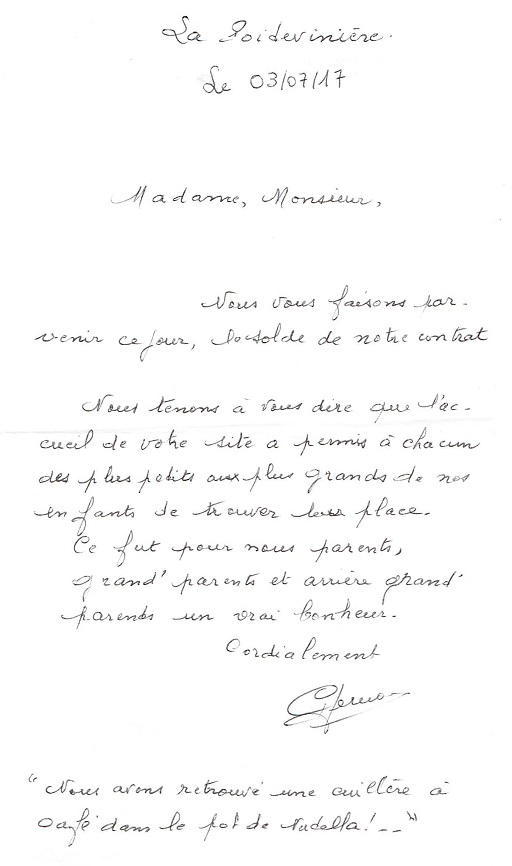 La Poidevinière.
Le 03/07/17
Madame, Monsieur,
Nous vous faisons par-
venir ce jour, le solde de notre contrat
Nous tenons à vous dire que l'ac-
cueil de votre site a permis à chacun
des plus petits aux plus grands de nos
enfants de trouver leur place.
Ce fut pour nous parents,
grand' parents et arrière grand'
parents un vrai bonheur.
Cordialement
"Nous avons retrouvé une cuillère à
café dans le pot de Nutella! -- "